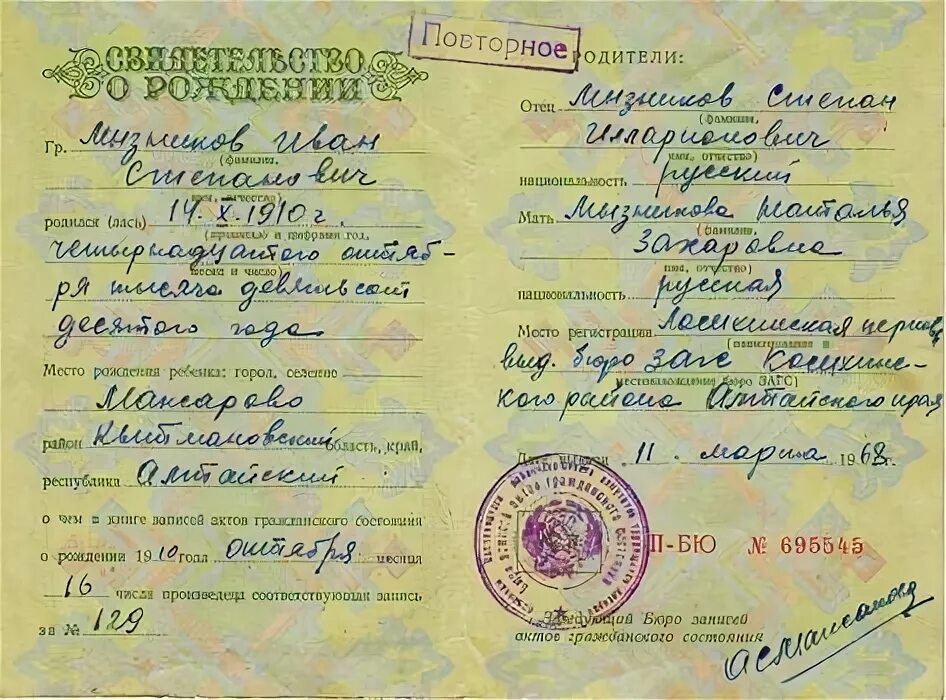 СВИДЕТЕЛЬСТВО
О РОЖДЕНИИ
Гр. Мызников Иван
(фамилия,
Степанович
имя, отчество)
родился (лась) 14.X.1910 г.
(прописью и цифрами год,
четырнадцатого октяб-
месяц и число)
ря тысяча девятьсот
десятого года
Место рождения ребенка: город, селение
Мансарово
район Кытмановский область, край,
республика Алтайский
о чем в книге записей актов гражданского состояния
о рождении 1910 года октября месяца
16 числа произведена соответствующая запись
за № 129
Повторное
РОДИТЕЛИ:
Отец Мызников Степан
(фамилия,
Илларионович
имя, отчество)
национальность русский
Мать Мызникова Наталья
(фамилия,
Захаровна
имя, отчество)
национальность русская
Место регистрации церковь
(наименование и
выд. бюро ЗАГС
местонахождение бюро ЗАГС)
кого района Алтайского края
Дата выдачи 11 марта 1968 г.
II-БЮ № 695545
Заведующий Бюро записей
актов гражданского состояния